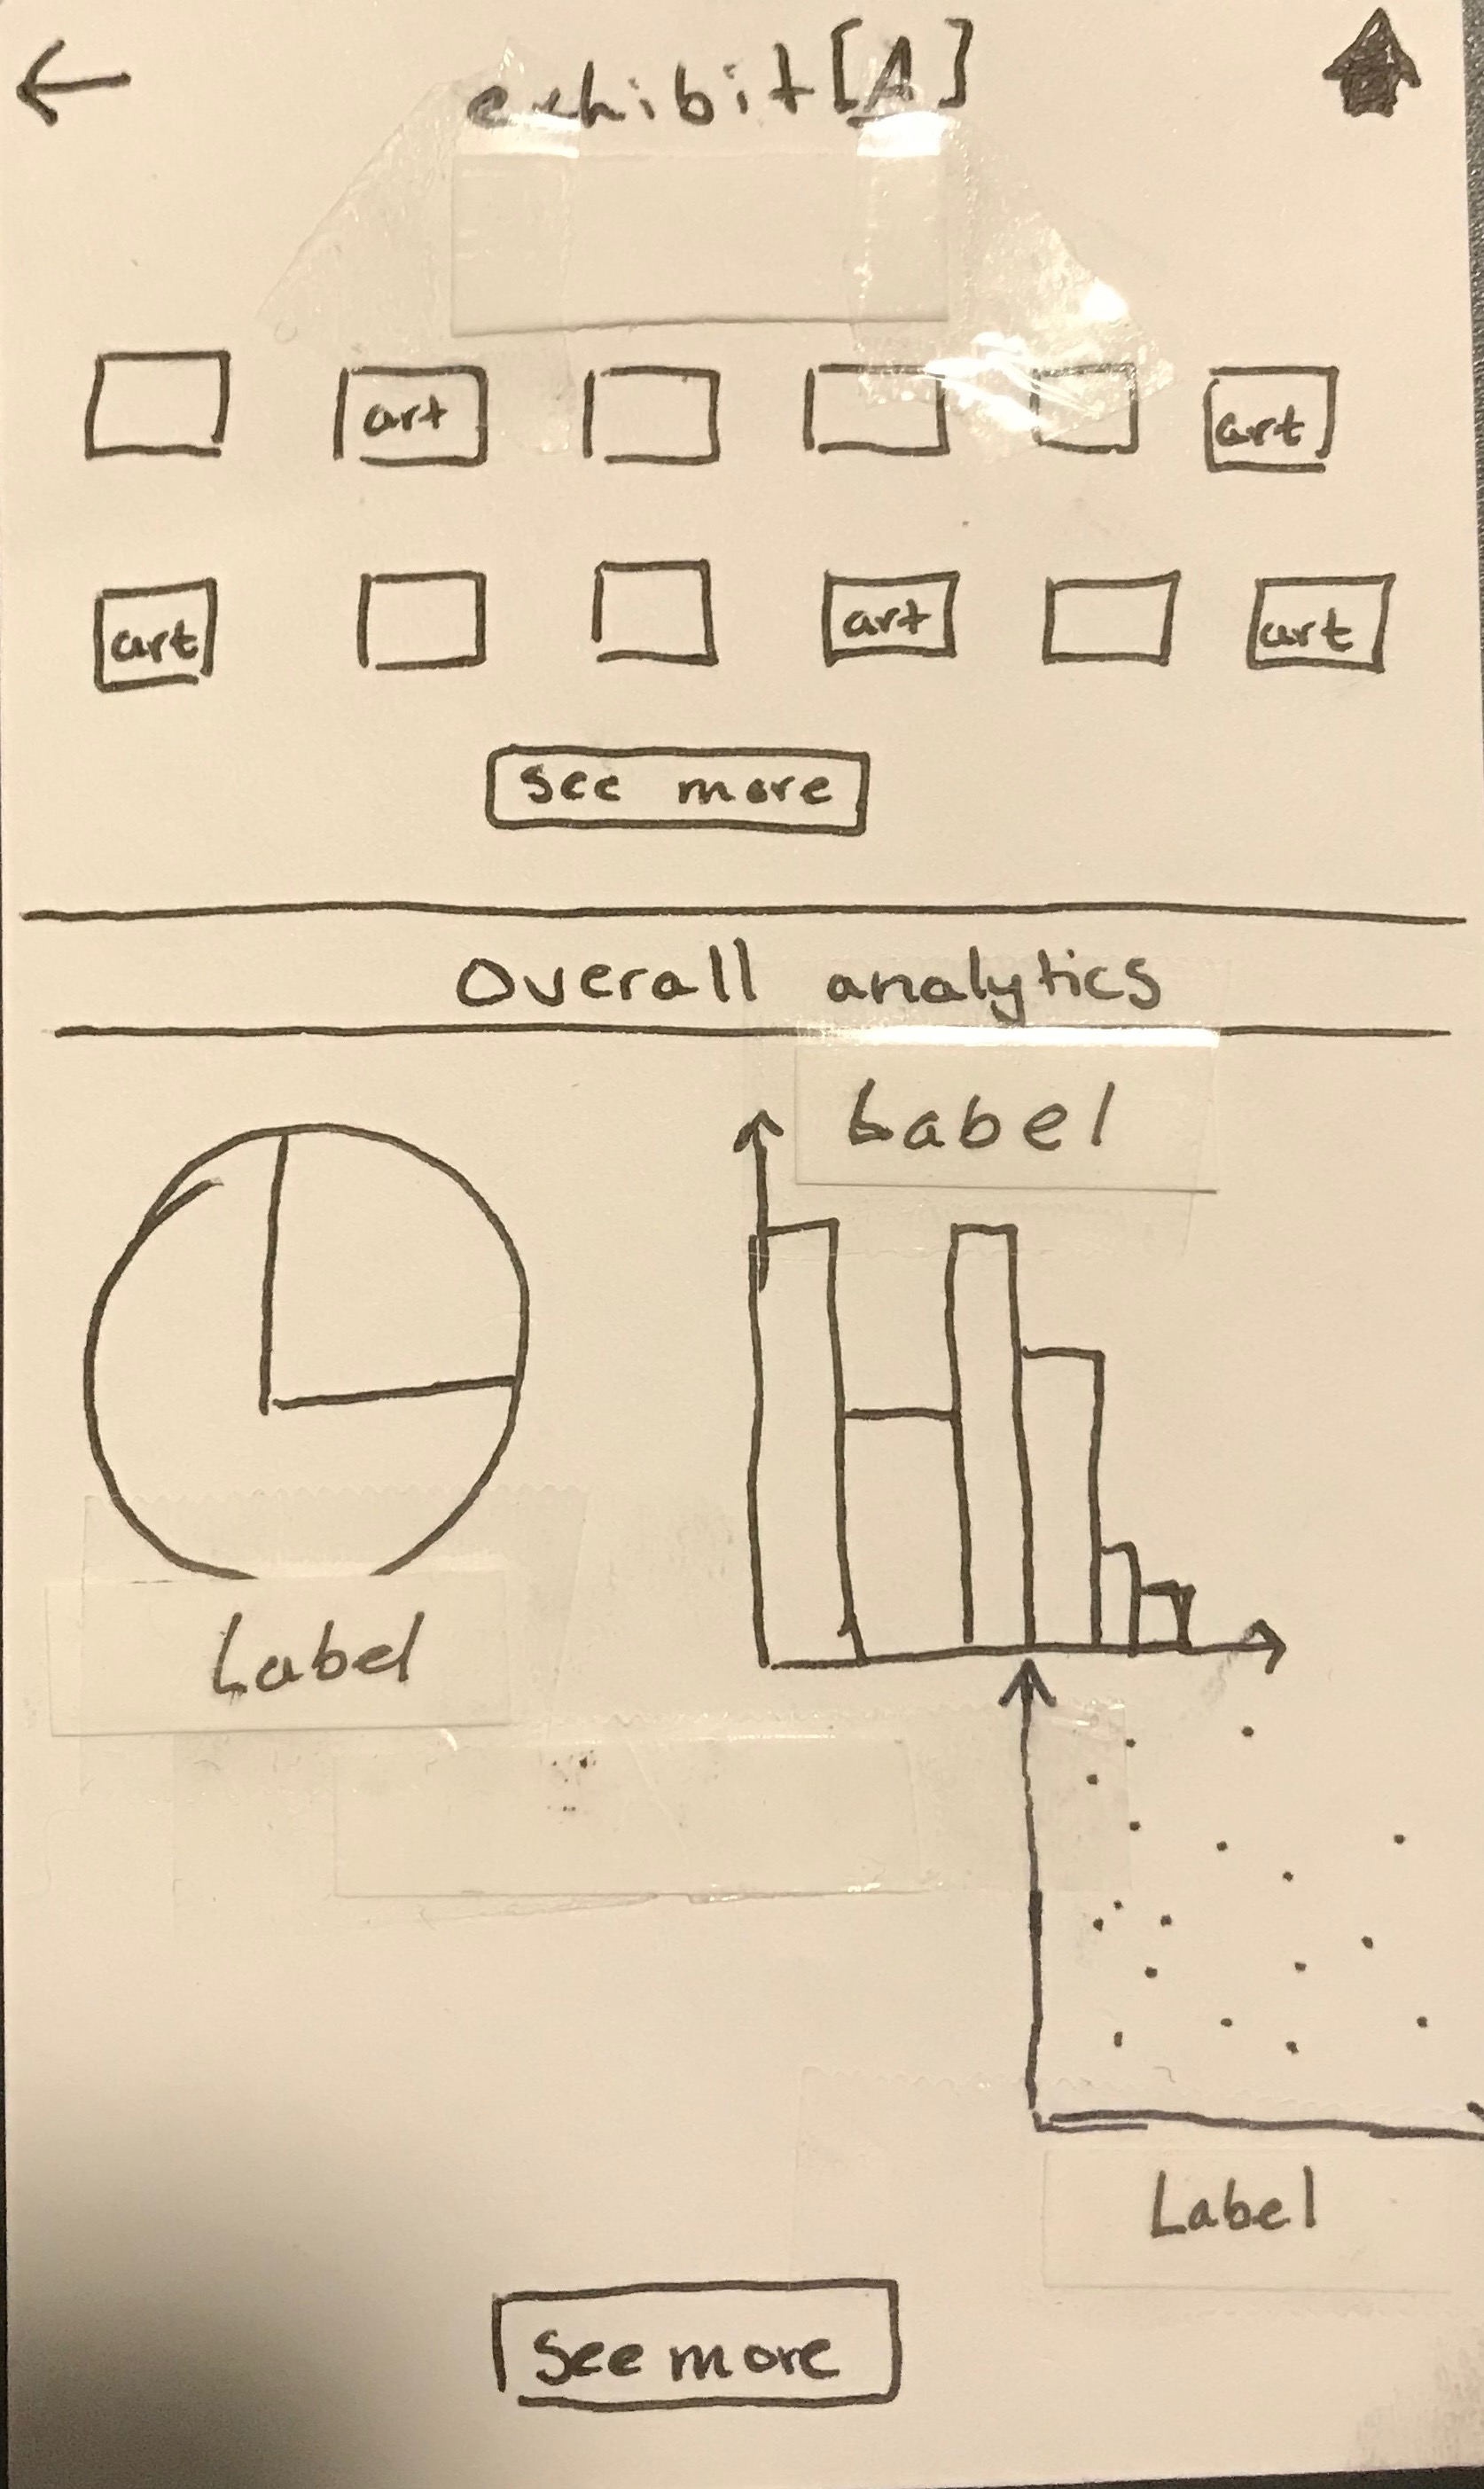 exhibit[A]
art art
art art art
see more
Overall analytics
Label
Label
Label
See more